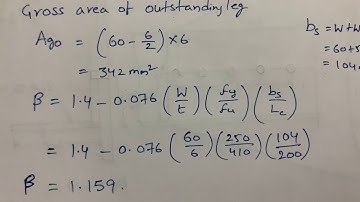 Gross area of outstanding leg
Ago = (60 - 6/2) × 6
= 342 mm²
β = 1.4 - 0.076 (W/t) (fy/fu) (bs/Lc)
= 1.4 - 0.076 (60/6) (250/410) (104/200)
β = 1.159.
bs = W+W
= 60+5
= 104